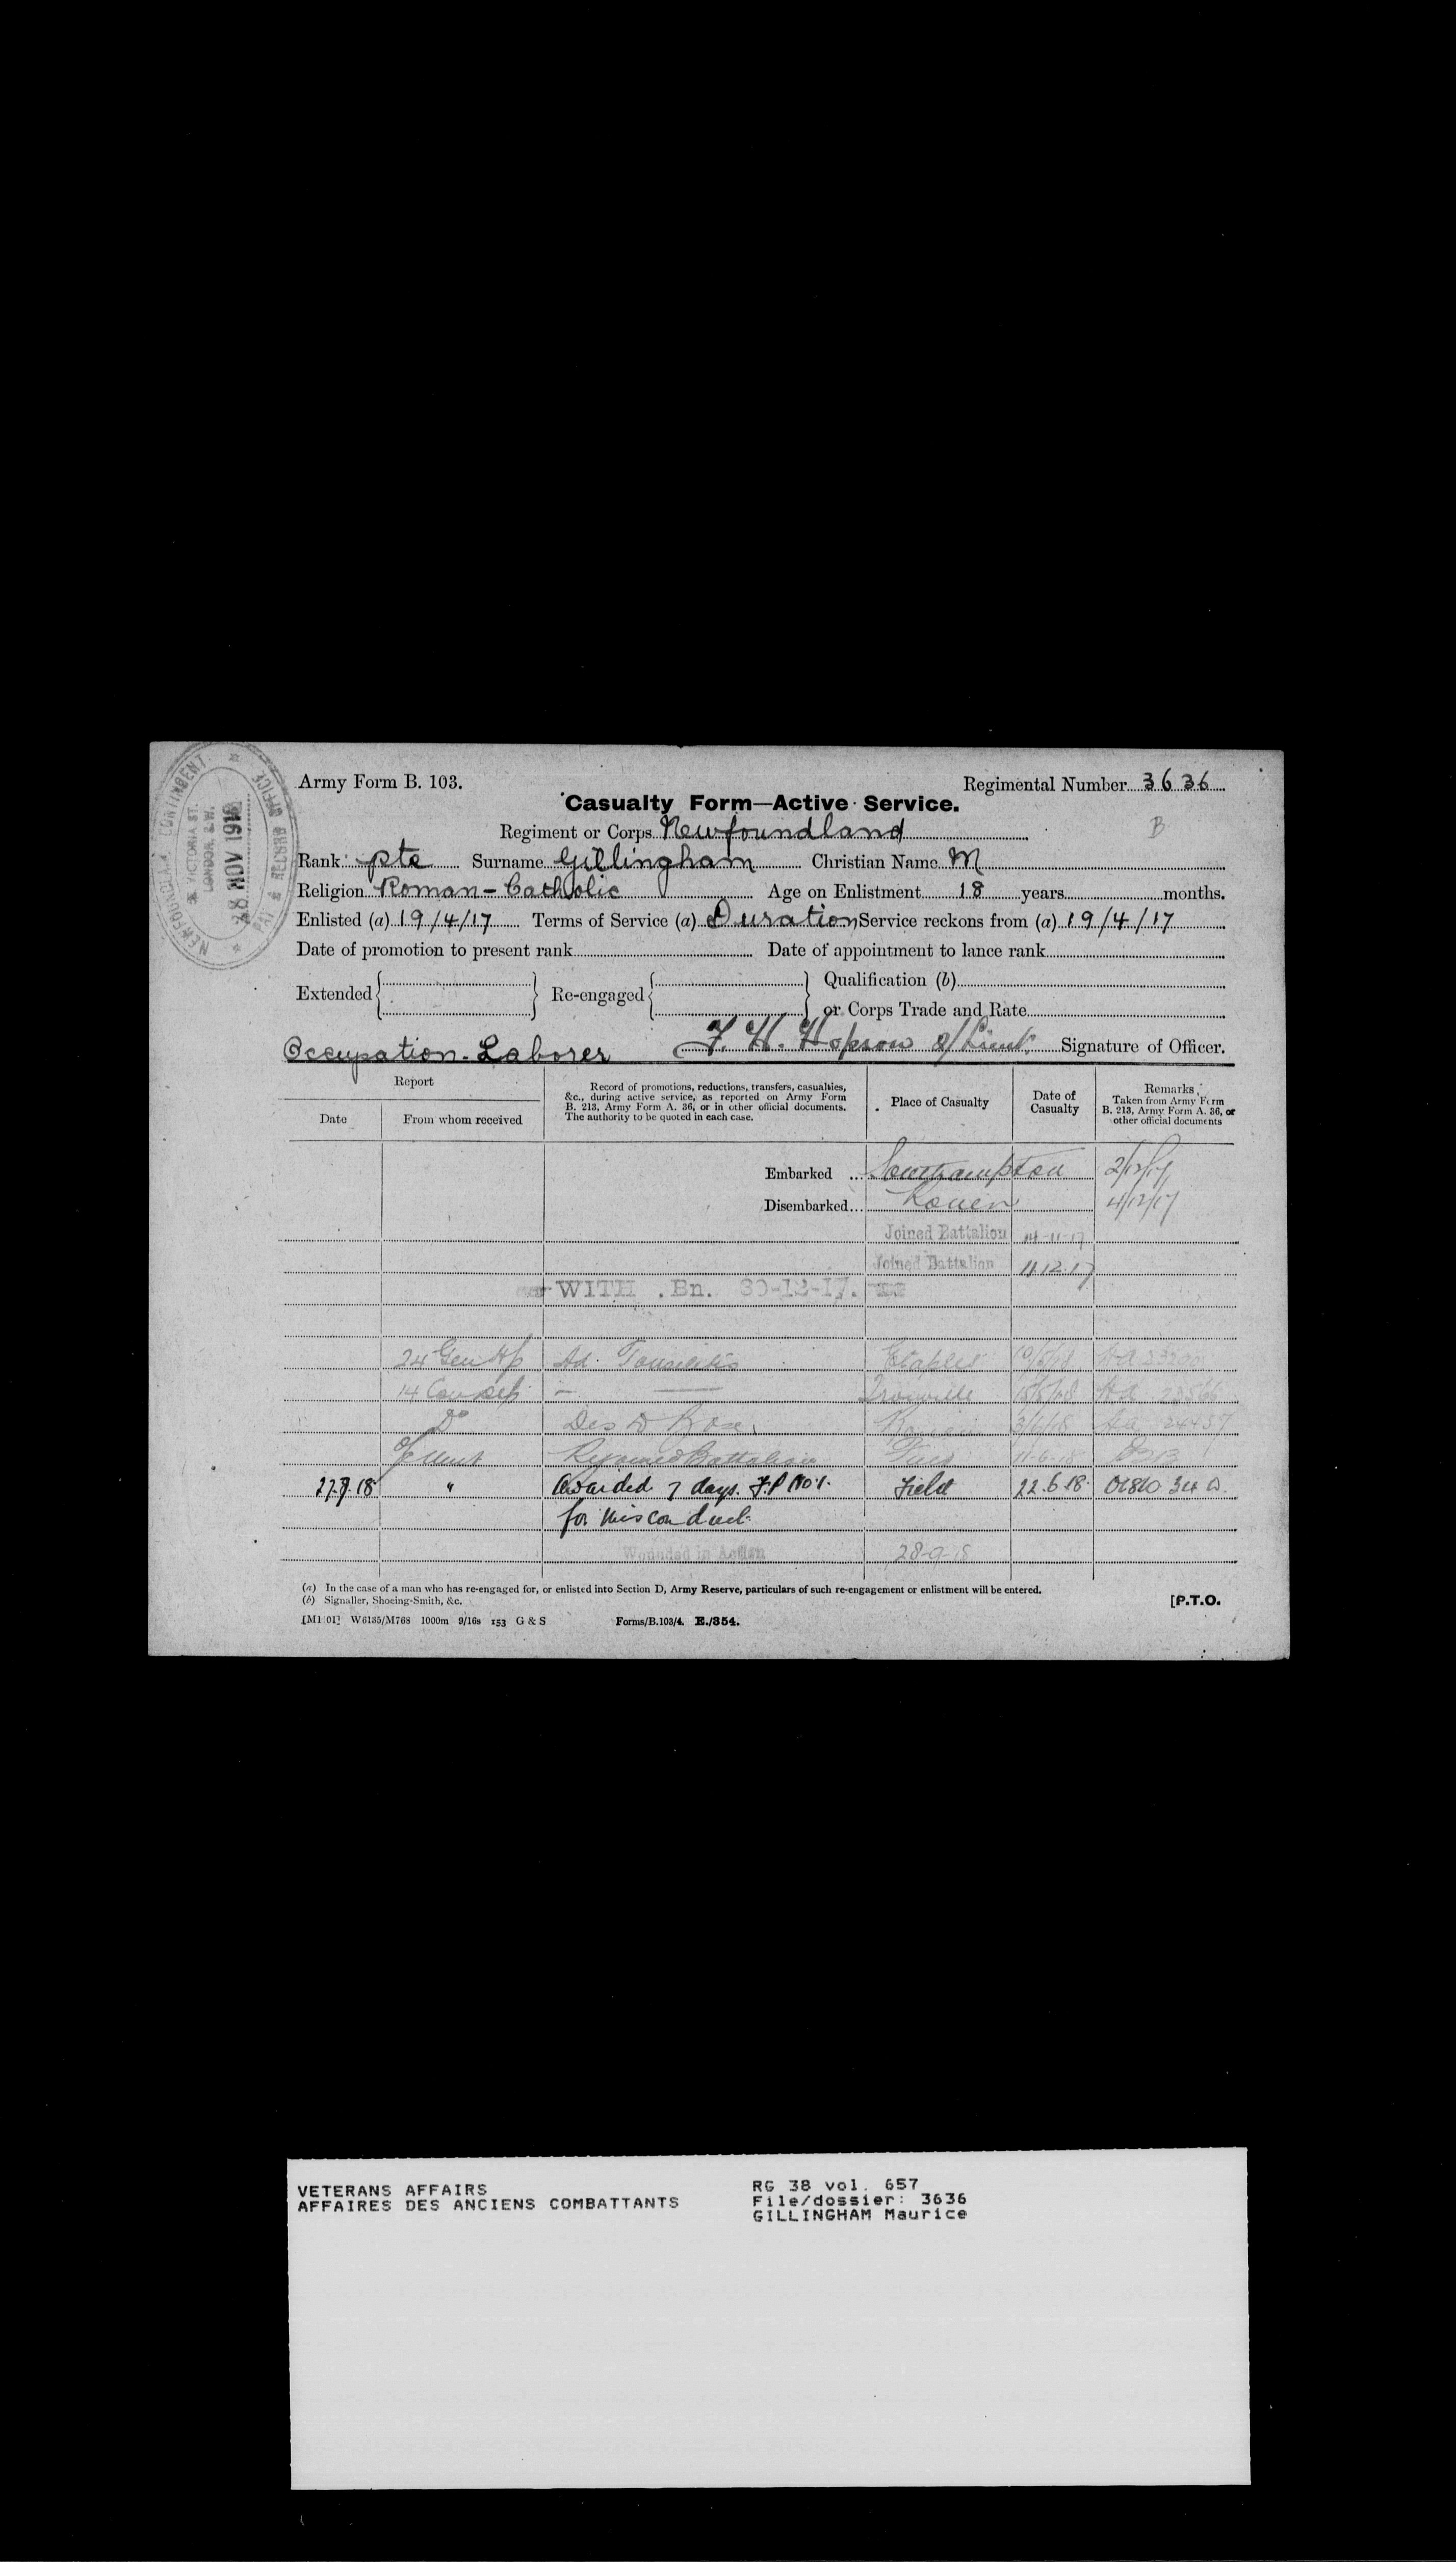 NEWFOUNDLAND CONTINGENT
PAY & RECORD OFFICE
VICTORIA ST.
LONDON, S.W.
28 NOV 1918
Army Form B. 103.
Regimental Number 3636
Casualty Form—Active Service.
Regiment or Corps Newfoundland
B
Rank pte Surname Gillingham Christian Name M
Religion Roman-Catholic Age on Enlistment 18 years months.
Enlisted (a) 19/4/17 Terms of Service (a) Duration Service reckons from (a) 19/4/17
Date of promotion to present rank Date of appointment to lance rank
Extended Re-engaged Qualification (b)
or Corps Trade and Rate
Occupation-Laborer F. H. Hopson 2/Lieut. Signature of Officer.
Report
Date From whom received
Record of promotions, reductions, transfers, casualties,
&c., during active service, as reported on Army Form
B. 213, Army Form A. 36, or in other official documents.
The authority to be quoted in each case.
Place of Casualty
Date of
Casualty
Remarks
Taken from Army Form
B. 213, Army Form A. 36, or
other official documents
Embarked ... Southampton 2/12/17
Disembarked... Rouen 4/12/17
Joined Battalion 14-11-17
Joined Battalion 11.12.17
WITH . Bn. 30-12-17.
24 Gen Hp Ad. Tonsilitis Etaples
14 Con Dep — Trouville
Do Des to Base 3/6/18 24437
Rejoined Battalion Field 11-6-18 B213
27.7.18 " Awarded 7 days F.P No 1. Field 22.6.18
for misconduct.
Wounded in Action 28-9-18
(a) In the case of a man who has re-engaged for, or enlisted into Section D, Army Reserve, particulars of such re-engagement or enlistment will be entered.
(b) Signaller, Shoeing-Smith, &c.
[P.T.O.
W6135/M768 1000m 9/16s 153 G & S Forms/B.103/4. E./354.
VETERANS AFFAIRS
AFFAIRES DES ANCIENS COMBATTANTS
RG 38 vol. 657
File/dossier: 3636
GILLINGHAM Maurice